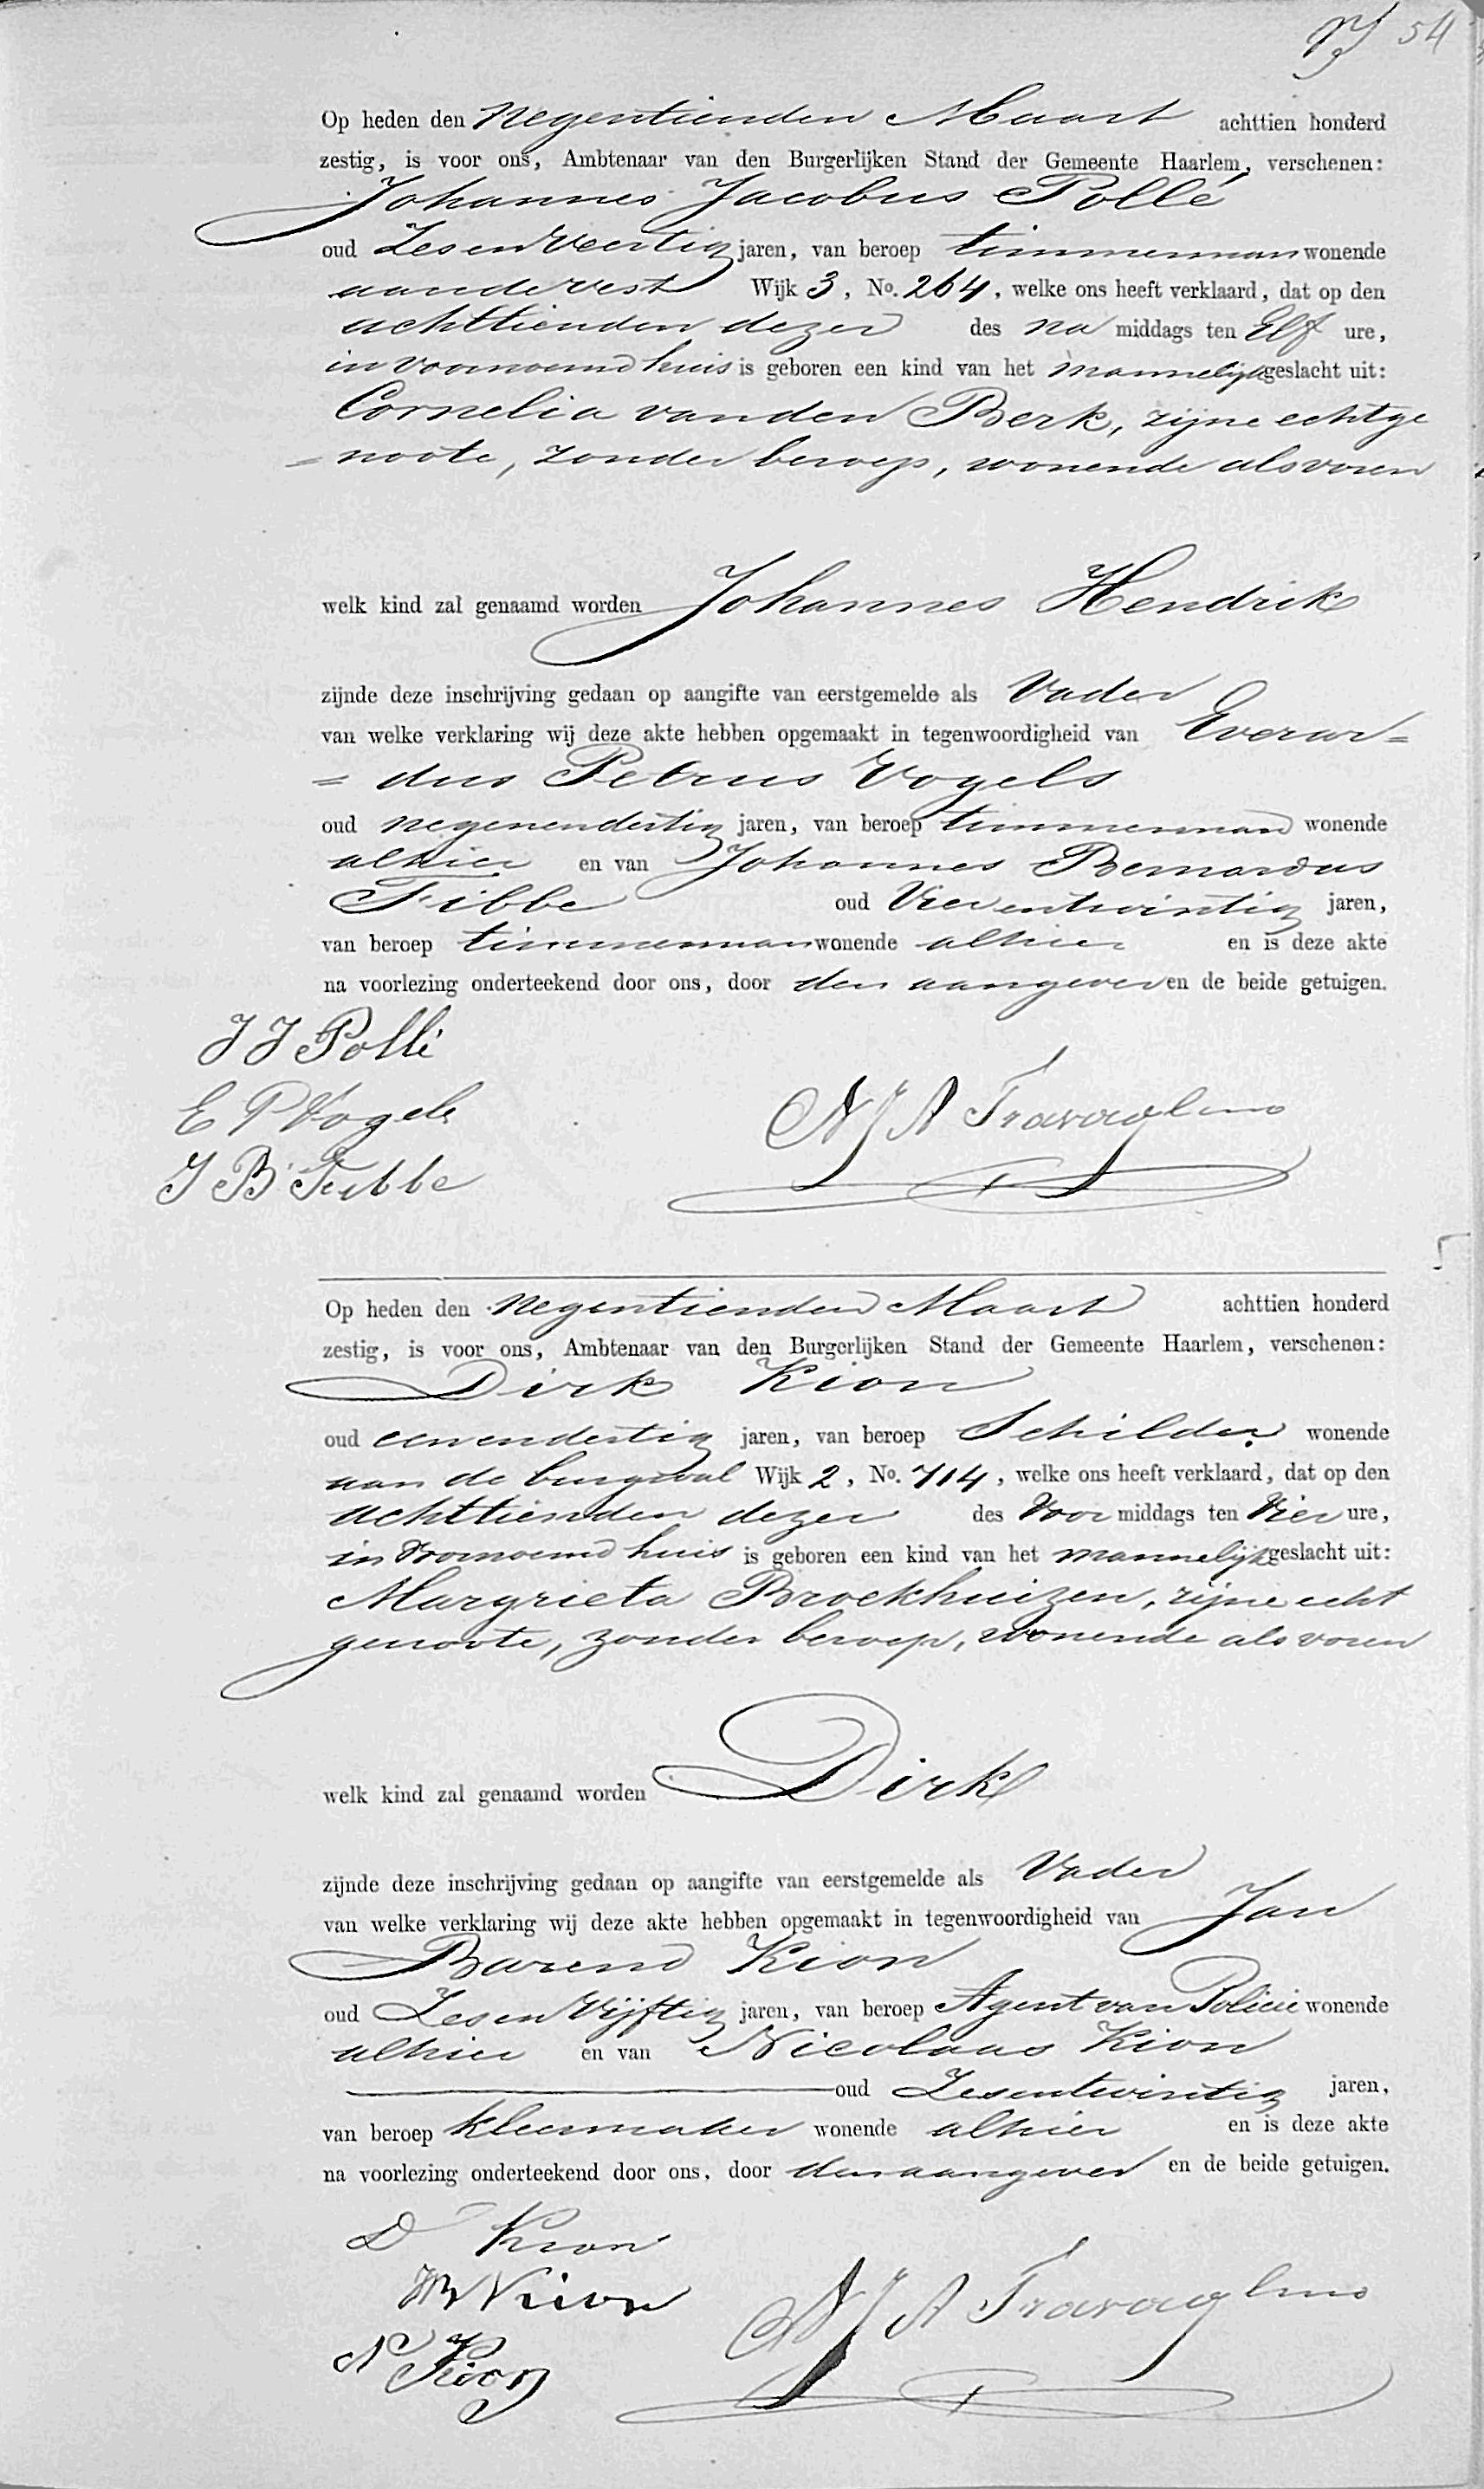 54
Op heden den Negentienden Maart achttien honderd
zestig, is voor ons, Ambtenaar van den Burgerlijken Stand der Gemeente Haarlem, verschenen:
Johannes Jacobus Pollé
oud Zesenveertig jaren, van beroep timmerman wonende
aandevest Wijk 3, No. 264, welke ons heeft verklaard, dat op den
achttienden dezer des na middags ten Elf ure,
in voornoemd huis is geboren een kind van het mannelijk geslacht uit:
Cornelia vanden Berk, zijne echtge
= noote, zonder beroep, wonende als voren
welk kind zal genaamd worden Johannes Hendrik
zijnde deze inschrijving gedaan op aangifte van eerstgemelde als Vader
van welke verklaring wij deze akte hebben opgemaakt in tegenwoordigheid van Everar=
= dus Petrus Vogels
oud negenendertig jaren, van beroep timmerman wonende
alhier en van Johannes Bernardus
Tibbe oud Vierentwintig jaren,
van beroep timmerman wonende alhier en is deze akte
na voorlezing onderteekend door ons, door den aangever en de beide getuigen.
J J Pollé
E P Vogels
J B Tibbe
N J A Travaglino
Op heden den Negentienden Maart achttien honderd
zestig, is voor ons, Ambtenaar van den Burgerlijken Stand der Gemeente Haarlem, verschenen:
Dirk Kion
oud eenendertig jaren, van beroep Schilder wonende
aan de burgwal Wijk 2, No. 714, welke ons heeft verklaard, dat op den
achttienden dezer des Voor middags ten Vier ure,
in voornoemd huis is geboren een kind van het mannelijk geslacht uit:
Margrieta Broekhuizen, zijne echt
genoote, zonder beroep, wonende als voren
welk kind zal genaamd worden Dirk
zijnde deze inschrijving gedaan op aangifte van eerstgemelde als Vader
van welke verklaring wij deze akte hebben opgemaakt in tegenwoordigheid van Jan
Barend Kion
oud Zesenvijftig jaren, van beroep Agent van Policie wonende
alhier en van Nicolaas Kion
oud Zesentwintig jaren,
van beroep kleermaker wonende alhier en is deze akte
na voorlezing onderteekend door ons, door den aangever en de beide getuigen.
D Kion
JB Kion
N Kion
N J A Travaglino